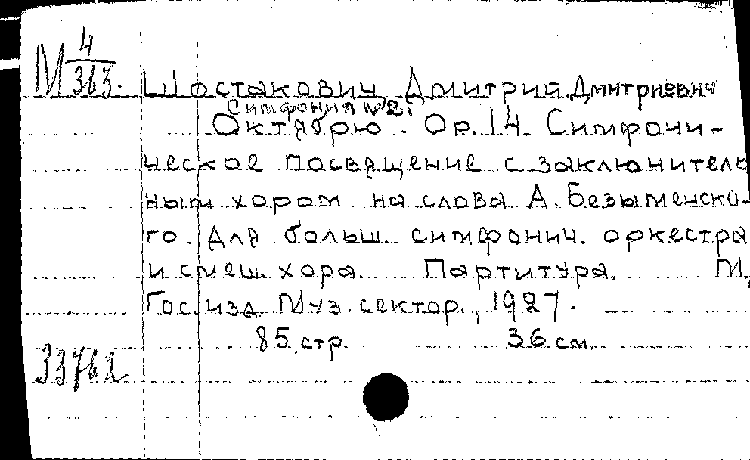 М 4/363. Шостакович, Дмитрий Дмитриевич
Симфония №2.
Октябрю. Op. 14. Симфони-
ческое посвящение с заключитель
ным хором на слова А. Безыменско-
го. Для больш. симфонич. оркестра
и смеш. хора. Партитура. М,
Гос. изд. Муз. сектор, 1927.
85 стр. 36 см.
33762